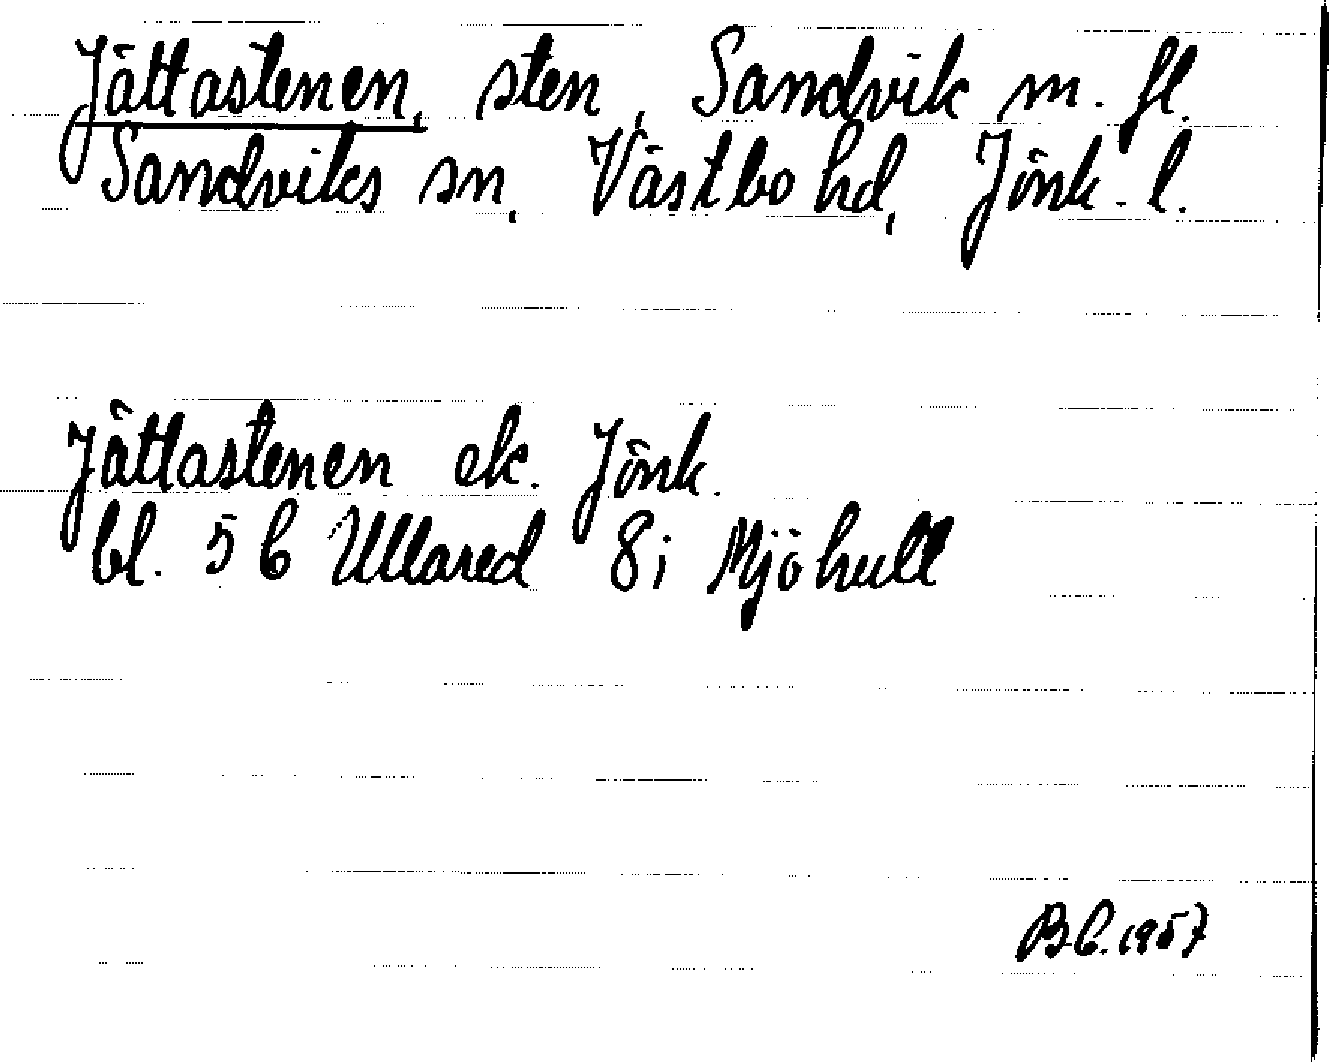 Jättastenen, sten, Sandvik m. fl.
Sandviks sn, Västbo hd, Jönk. l.
Jättastenen ek. Jönk.
bl. 5 C Ullared 8 i Mjöhult
BC. 1957